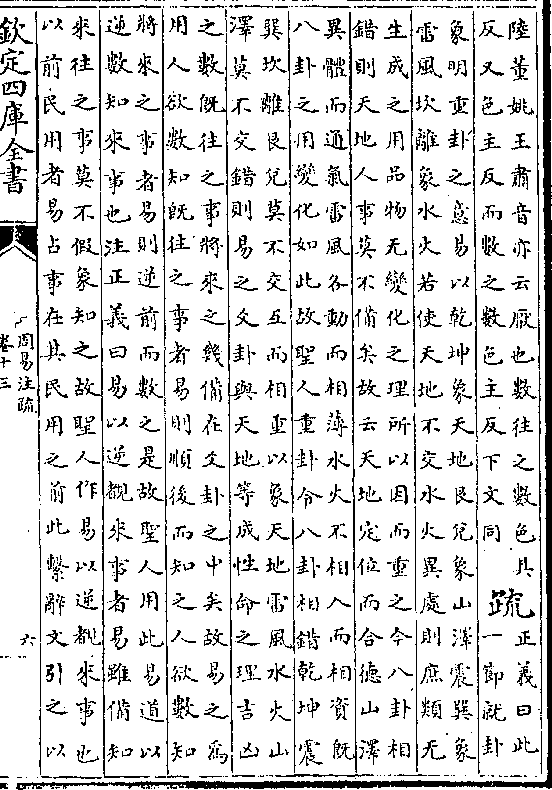 陸董姚王肅音亦云厭也數往之數色具
反又色主反而數之數色主反下文同
疏
正義曰此
一節就卦
象明重卦之意易以乾坤象天地艮兌象山澤震巽象
雷風坎離象水火若使天地不交水火異處則庶類无
生成之用品物无變化之理所以因而重之今八卦相
錯則天地人事莫不備矣故云天地定位而合德山澤
異體而通氣雷風各動而相薄水火不相入而相資既
八卦之用變化如此故聖人重卦令八卦相錯乾坤震
巽坎離艮兌莫不交互而相重以象天地雷風水火山
澤莫不交錯則易之爻卦與天地等成性命之理吉凶
之數既往之事將來之幾備在爻卦之中矣故易之為
用人欲數知既往之事者易則順後而知之人欲數知
將來之事者易則逆前而數之是故聖人用此易道以
逆數知來事也注正義曰易以逆覩來事者易雖備知
來往之事莫不假象知之故聖人作易以逆覩來事也
以前民用者易占事在其民用之前此繫辭文引之以
欽定四庫全書
周易注疏
卷十三
六